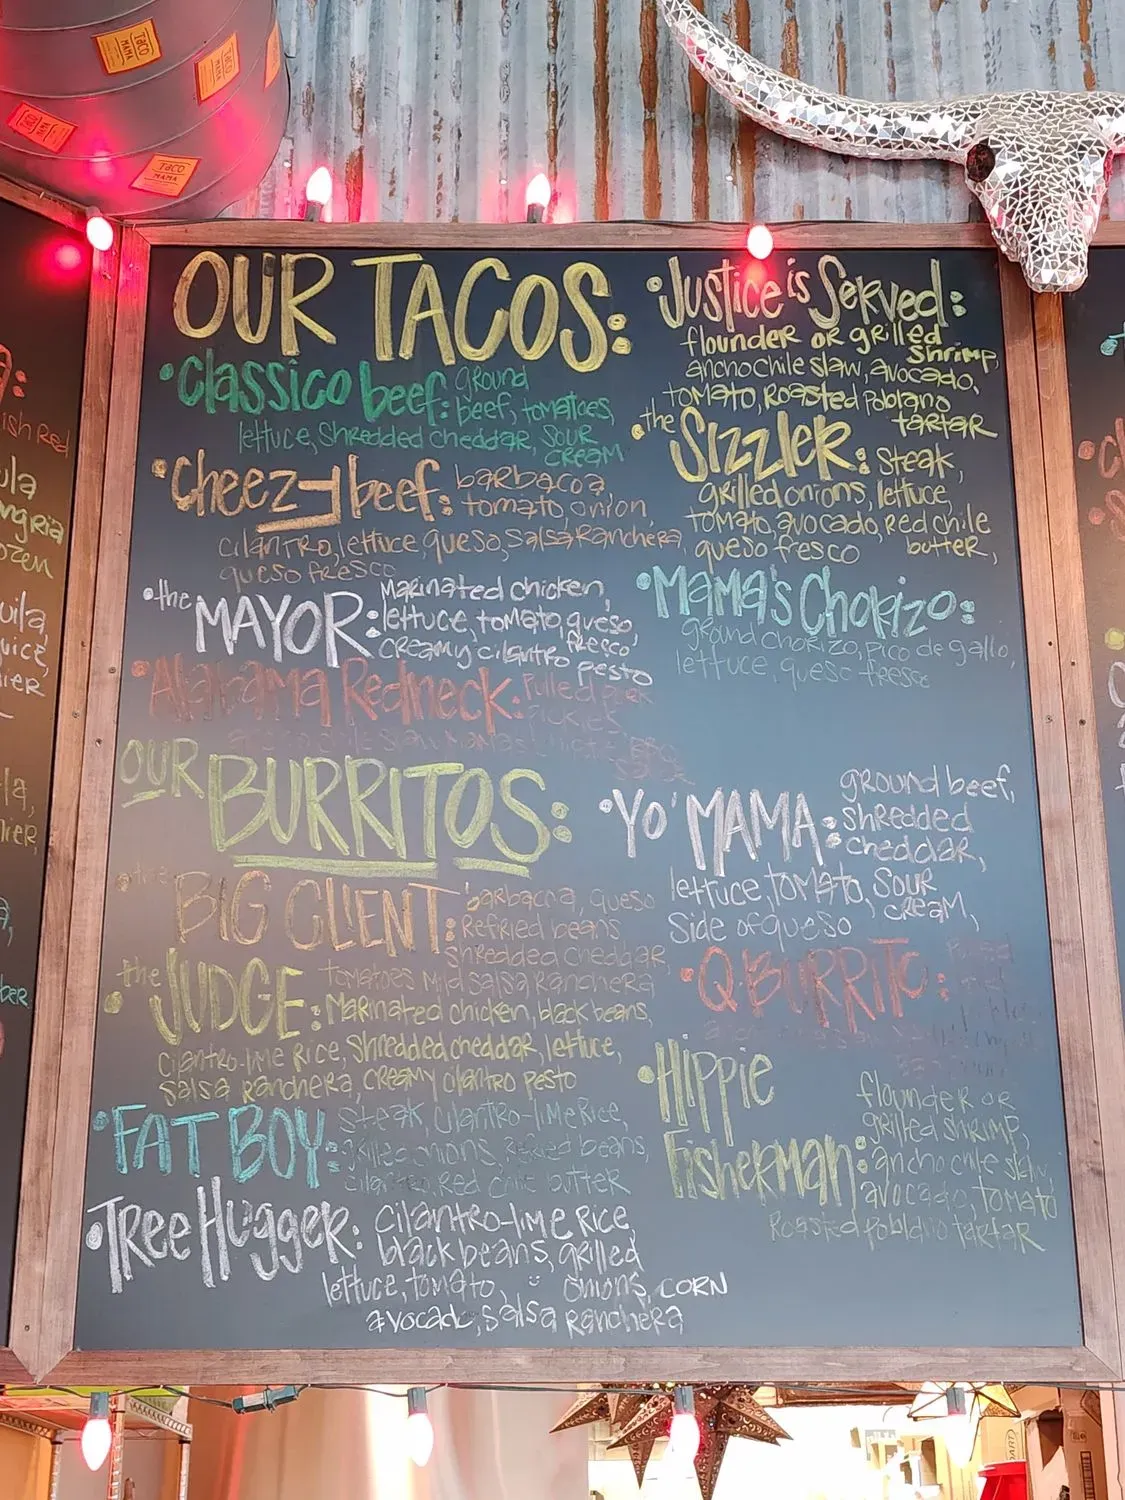 TACO MAMA
TACO MAMA
TACO MAMA
TACO MAMA
OUR TACOS:
• Classico beef: ground
beef, tomatoes,
lettuce, Shredded cheddar, sour
cream
• Cheezy beef: barbacoa
tomato, onion,
cilantro, lettuce, queso, salsa Ranchera,
queso fresco
• the MAYOR: Marinated chicken,
lettuce, tomato, queso
fresco,
creamy cilantro pesto
• Alabama Redneck: Pulled
Pickles
• Justice is Served:
flounder or grilled
shrimp,
ancho chile slaw, avocado,
tomato, Roasted Poblano
tartar
• the Sizzler: Steak,
grilled onions, lettuce,
tomato, avocado, Red chile
butter,
queso fresco
• Mama's Chorizo:
ground chorizo, pico de gallo,
lettuce, queso fresco
OUR BURRITOS:
• the BIG CLIENT: barbacoa, queso
Refried beans
shredded cheddar,
tomatoes mild salsa Ranchera
• the JUDGE: Marinated chicken, black beans,
cilantro-lime Rice, Shredded cheddar, lettuce,
salsa Ranchera, creamy cilantro pesto
• FAT BOY: Steak, cilantro-lime Rice,
grilled onions, Refried beans,
cilantro, Red chile butter
• Tree Hugger: cilantro-lime Rice,
black beans, grilled
onions, CORN
lettuce, tomato,
avocado, salsa Ranchera
• Yo' MAMA: ground beef,
shredded
cheddar,
lettuce, tomato, sour
cream,
side of queso
• Q BURRITO:
• Hippie
Fisherman: flounder or
grilled shrimp,
ancho chile slaw
avocado, tomato
Roasted poblano tartar
ish Red
ila
ngria
ozen
uila,
juice,
lier